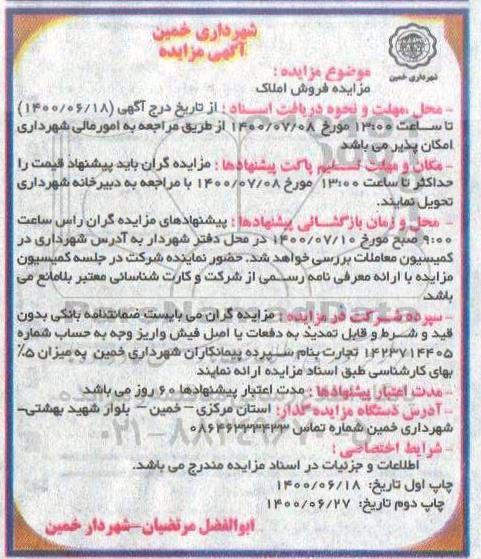 شهرداری خمین
آگهی مزایده
شهرداری خمین
موضوع مزایده :
مزایده فروش املاک
– محل ،مهلت و نحوه دریافت اسناد : از تاریخ درج آگهی (۱۴۰۰/۰۶/۱۸)
تا ساعت ۱۴:۰۰ مورخ ۱۴۰۰/۰۷/۰۸ از طریق مراجعه به امورمالی شهرداری
امکان پذیر می باشد
– مکان و مهلت تسلیم پاکت پیشنهادها : مزایده گران باید پیشنهاد قیمت را
حداکثر تا ساعت ۱۳:۰۰ مورخ ۱۴۰۰/۰۷/۰۸ با مراجعه به دبیرخانه شهرداری
تحویل نمایند.
– محل و زمان بازگشائی پیشنهادها : پیشنهادهای مزایده گران راس ساعت
۹:۰۰ صبح مورخ ۱۴۰۰/۰۷/۱۰ در محل دفتر شهردار به آدرس شهرداری در
کمیسیون معاملات بررسی خواهد شد. حضور نماینده شرکت در جلسه کمیسیون
مزایده با ارائه معرفی نامه رسمی از شرکت و کارت شناسائی معتبر بلامانع می
باشد.
– سپرده شرکت در مزایده : مزایده گران می بایست ضمانتنامه بانکی بدون
قید و شرط و قابل تمدید به دفعات یا اصل فیش واریز وجه به حساب شماره
۱۴۲۳۷۱۴۴۰۵ تجارت بنام سپرده پیمانکاران شهرداری خمین به میزان ۵%
بهای کارشناسی طبق اسناد مزایده ارائه نمایند
– مدت اعتبار پیشنهادها : مدت اعتبار پیشنهادها ۶۰ روز می باشد
– آدرس دستگاه مزایده گذار: استان مرکزی – خمین – بلوار شهید بهشتی–
شهرداری خمین شماره تماس ۰۸۶۴۶۲۳۳۴۲۳
– شرایط اختصاصی :
اطلاعات و جزئیات در اسناد مزایده مندرج می باشد.
چاپ اول تاریخ: ۱۴۰۰/۰۶/۱۸
چاپ دوم تاریخ: ۱۴۰۰/۰۶/۲۷
ابوالفضل مرتضیان–شهردار خمین